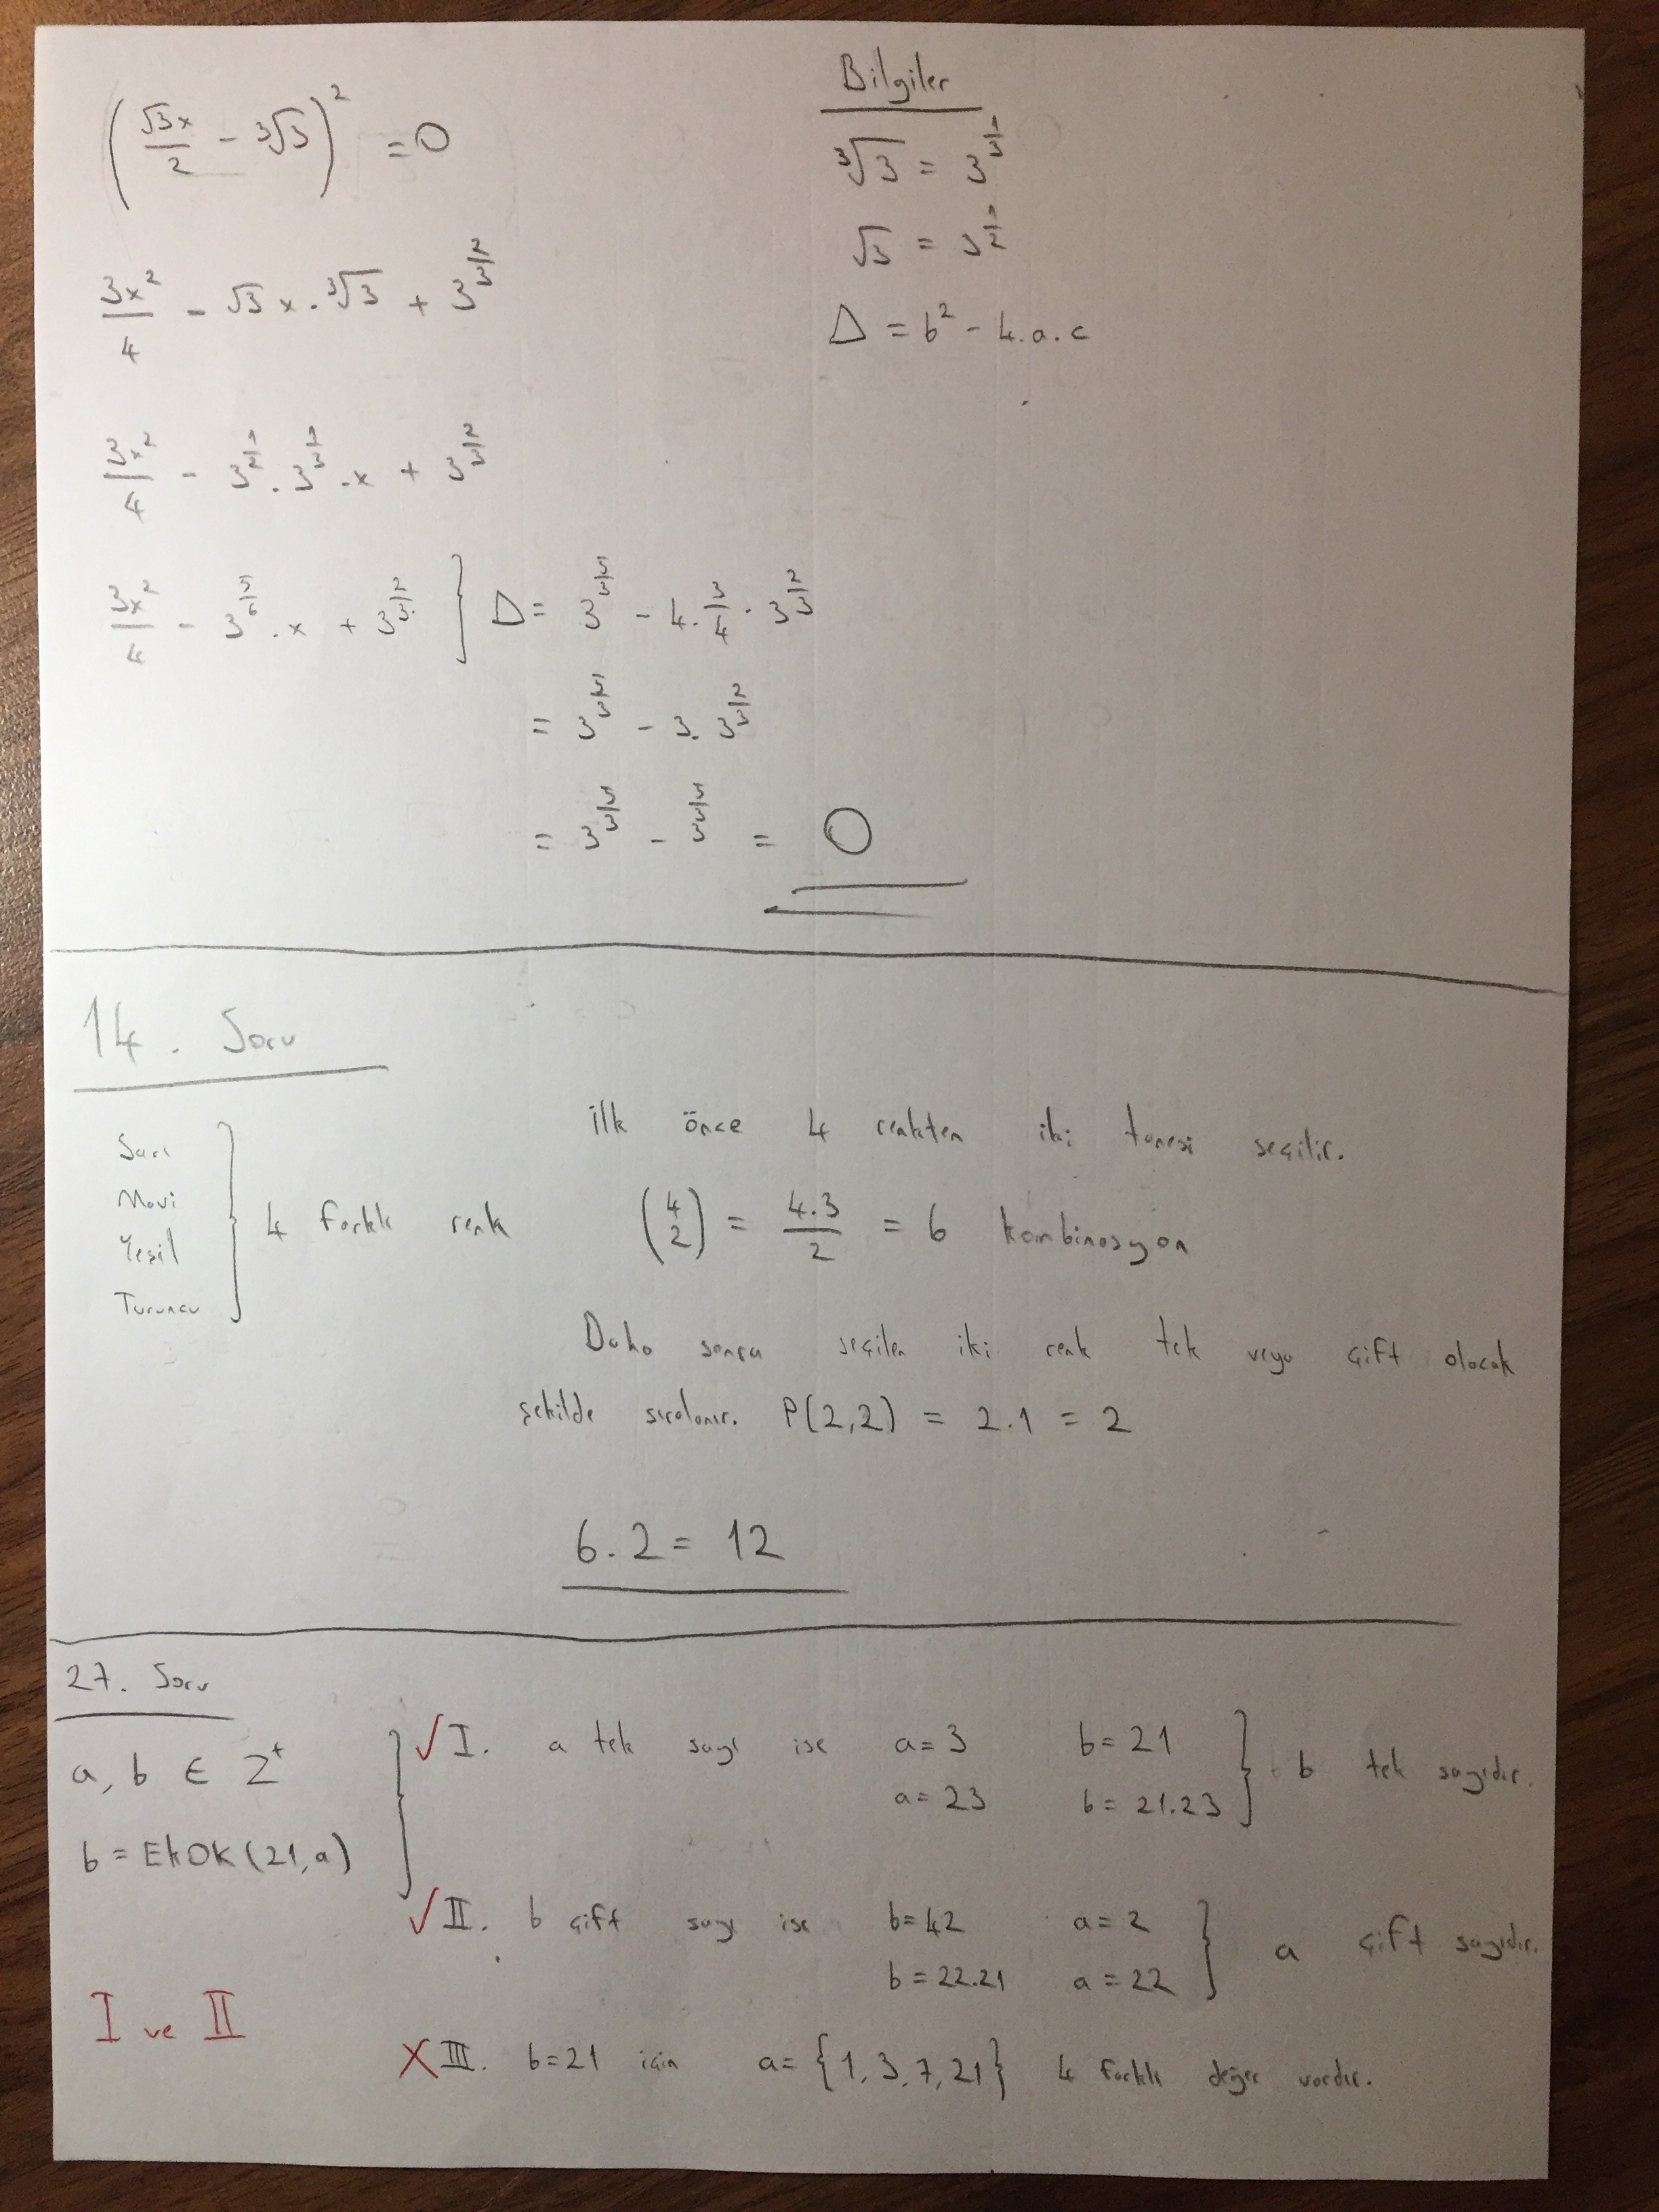 Bilgiler
(√3x/2 - ³√3)² = 0
³√3 = 3^(1/3)
√3 = 3^(1/2)
3x²/4 - √3 x . ³√3 + 3^(2/3)
Δ = b² - 4.a.c
3x²/4 - 3^(1/2) . 3^(1/3) . x + 3^(2/3)
3x²/4 - 3^(5/6) . x + 3^(2/3) ] Δ = 3^(5/3) - 4 . 3/4 . 3^(2/3)
= 3^(5/3) - 3 . 3^(2/3)
= 3^(5/3) - 3^(5/3) = 0
14. Soru
Sarı
Mavi
Yeşil
Turuncu
} 4 farklı renk
İlk önce 4 renkten iki tanesi seçilir.
(4 2) = 4.3/2 = 6 kombinasyon
Daha sonra seçilen iki renk tek veya çift olacak
şekilde sıralanır. P(2,2) = 2.1 = 2
6.2 = 12
27. Soru
a, b ∈ Z⁺
b = EKOK(21, a)
✓ I. a tek sayı ise a = 3 b = 21
a = 23 b = 21.23 } b tek sayıdır.
✓ II. b çift sayı ise b = 42 a = 2
b = 22.21 a = 22 } a çift sayıdır.
X III. b = 21 için a = {1, 3, 7, 21} 4 farklı değer vardır.
I ve II